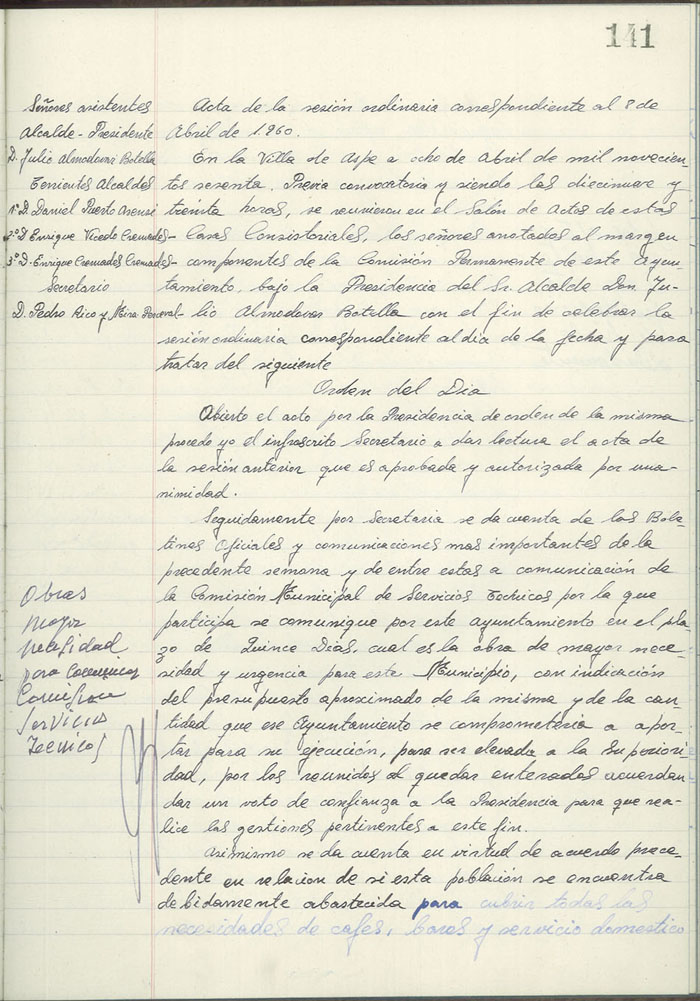 141
Señores asistentes
Alcalde-Presidente
D. Julio Almodovar Botella
Tenientes Alcaldes
1º D. Daniel Puerto Asensi
2º D Enrique Vicedo Cremades-
3º D. Enrique Cremades Cremades-
Secretario
D. Pedro Rico y Mira-Perceval-
Acta de la sesión ordinaria correspondiente al 8 de
Abril de 1.960.
En la Villa de Aspe a ocho de Abril de mil novecien-
tos sesenta. Previa convocatoria y siendo las diecinueve y
treinta horas, se reunieron en el Salón de Actos de estas
Casas Consistoriales, los señores anotados al margen
componentes de la Comisión Permanente de este Ayun-
tamiento, bajo la Presidencia del Sr. Alcalde Don Ju-
lio Almodovar Botella con el fin de celebrar la
sesión ordinaria correspondiente al dia de la fecha y para
tratar del siguiente
Orden del Dia
Abierto el acto por la Presidencia de orden de la misma
procedo yo el infrascrito Secretario a dar lectura el acta de
la sesión anterior que es aprobada y autorizada por una-
nimidad.
Seguidamente por Secretaria se da cuenta de los Bole-
tines Oficiales y comunicaciones mas importantes de la
precedente semana y de entre estas a comunicación de
la Comisión Municipal de Servicios Tecnicos por la que
participa se comunique por este ayuntamiento en el pla-
zo de Quince Dias, cual es la obra de mayor nece-
sidad y urgencia para este Municipio, con indicación
del presupuesto aproximado de la misma y de la can-
tidad que ese Ayuntamiento se comprometeria a apor-
tar para su ejecución, para ser elevada a la Superiori-
dad, por los reunidos al quedar enterados acuerdan
dar un voto de confianza a la Presidencia para que rea-
lice las gestiones pertinentes a este fin.
Asimismo se da cuenta en virtud de acuerdo prece-
dente en relacion de si esta población se encuentra
debidamente abastecida para cubrir todas las
necesidades de cafes, bares y servicio domestico
Obras
mayor
necesidad
para comunicar
Comision
Servicios
Tecnicos